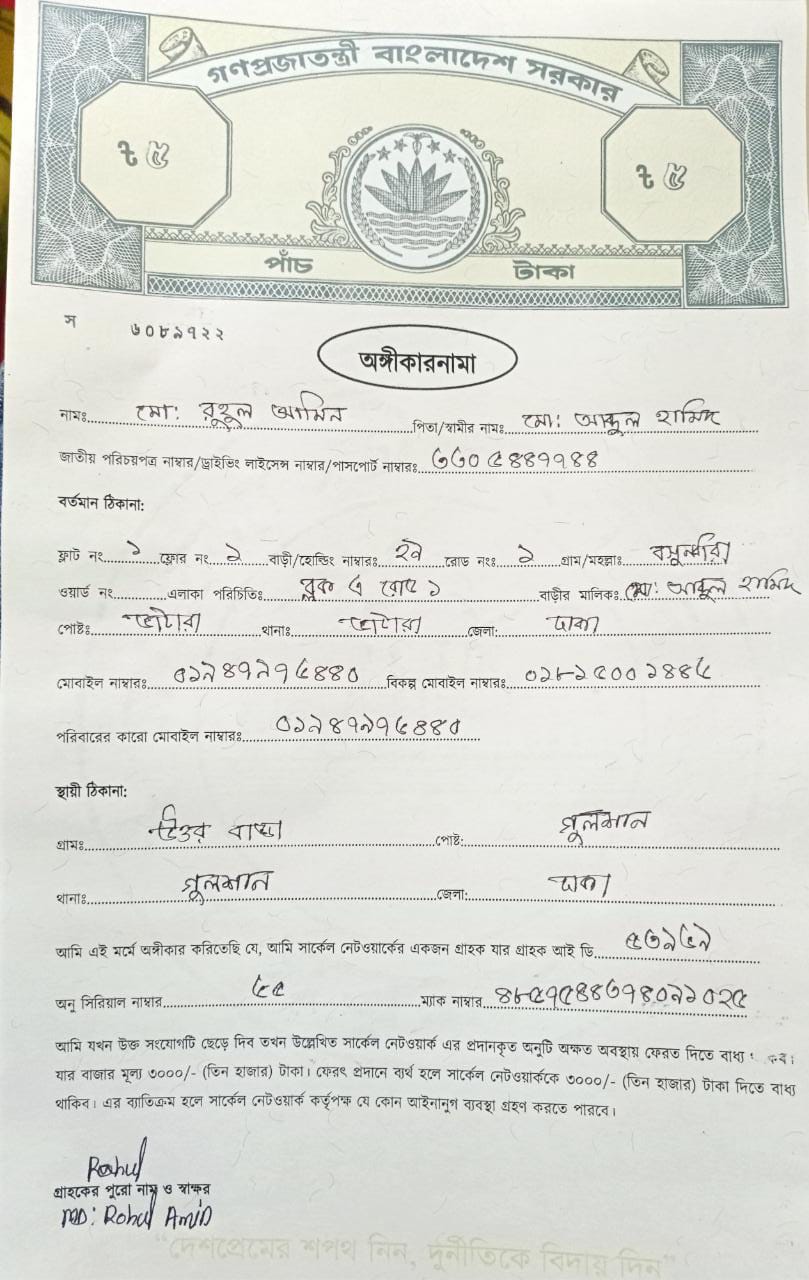 গণপ্রজাতন্ত্রী বাংলাদেশ সরকার
৳ ৫ ৳ ৫
পাঁচ টাকা
স ৬০৮৯৭২২
অঙ্গীকারনামা
নামঃ মো: রুহুল আমিন পিতা/স্বামীর নামঃ মো: আব্দুল হামিদ
জাতীয় পরিচয়পত্র নাম্বার/ড্রাইভিং লাইসেন্স নাম্বার/পাসপোর্ট নাম্বারঃ
বর্তমান ঠিকানা:
ফ্লাট নং ১ ফ্লোর নং ১ বাড়ী/হোল্ডিং নাম্বারঃ রোড নংঃ ১ গ্রাম/মহল্লাঃ বসুন্ধরা
ওয়ার্ড নং এলাকা পরিচিতিঃ ব্লক রোড ১ বাড়ীর মালিকঃ মো: আব্দুল হামিদ
পোষ্টঃ ভাটারা থানাঃ ভাটারা জেলা: ঢাকা
মোবাইল নাম্বারঃ বিকল্প মোবাইল নাম্বারঃ
পরিবারের কারো মোবাইল নাম্বারঃ
স্থায়ী ঠিকানা:
গ্রামঃ উত্তর বাড্ডা পোষ্ট: গুলশান
থানাঃ গুলশান জেলা: ঢাকা
আমি এই মর্মে অঙ্গীকার করিতেছি যে, আমি সার্কেল নেটওয়ার্কের একজন গ্রাহক যার গ্রাহক আই ডি
অনু সিরিয়াল নাম্বার ৫৫ ম্যাক নাম্বার
আমি যখন উক্ত সংযোগটি ছেড়ে দিব তখন উল্লেখিত সার্কেল নেটওয়ার্ক এর প্রদানকৃত অনুটি অক্ষত অবস্থায় ফেরত দিতে বাধ্য
যার বাজার মূল্য ৩০০০/- (তিন হাজার) টাকা। ফেরৎ প্রদানে ব্যর্থ হলে সার্কেল নেটওয়ার্ককে ৩০০০/- (তিন হাজার) টাকা দিতে বাধ্য
থাকিব। এর ব্যতিক্রম হলে সার্কেল নেটওয়ার্ক কর্তৃপক্ষ যে কোন আইনানুগ ব্যবস্থা গ্রহণ করতে পারবে।
Rohul
গ্রাহকের পুরো নাম ও স্বাক্ষর
MD: Rohul Amin
"দেশপ্রেমের শপথ নিন, দুর্নীতিকে বিদায় দিন"